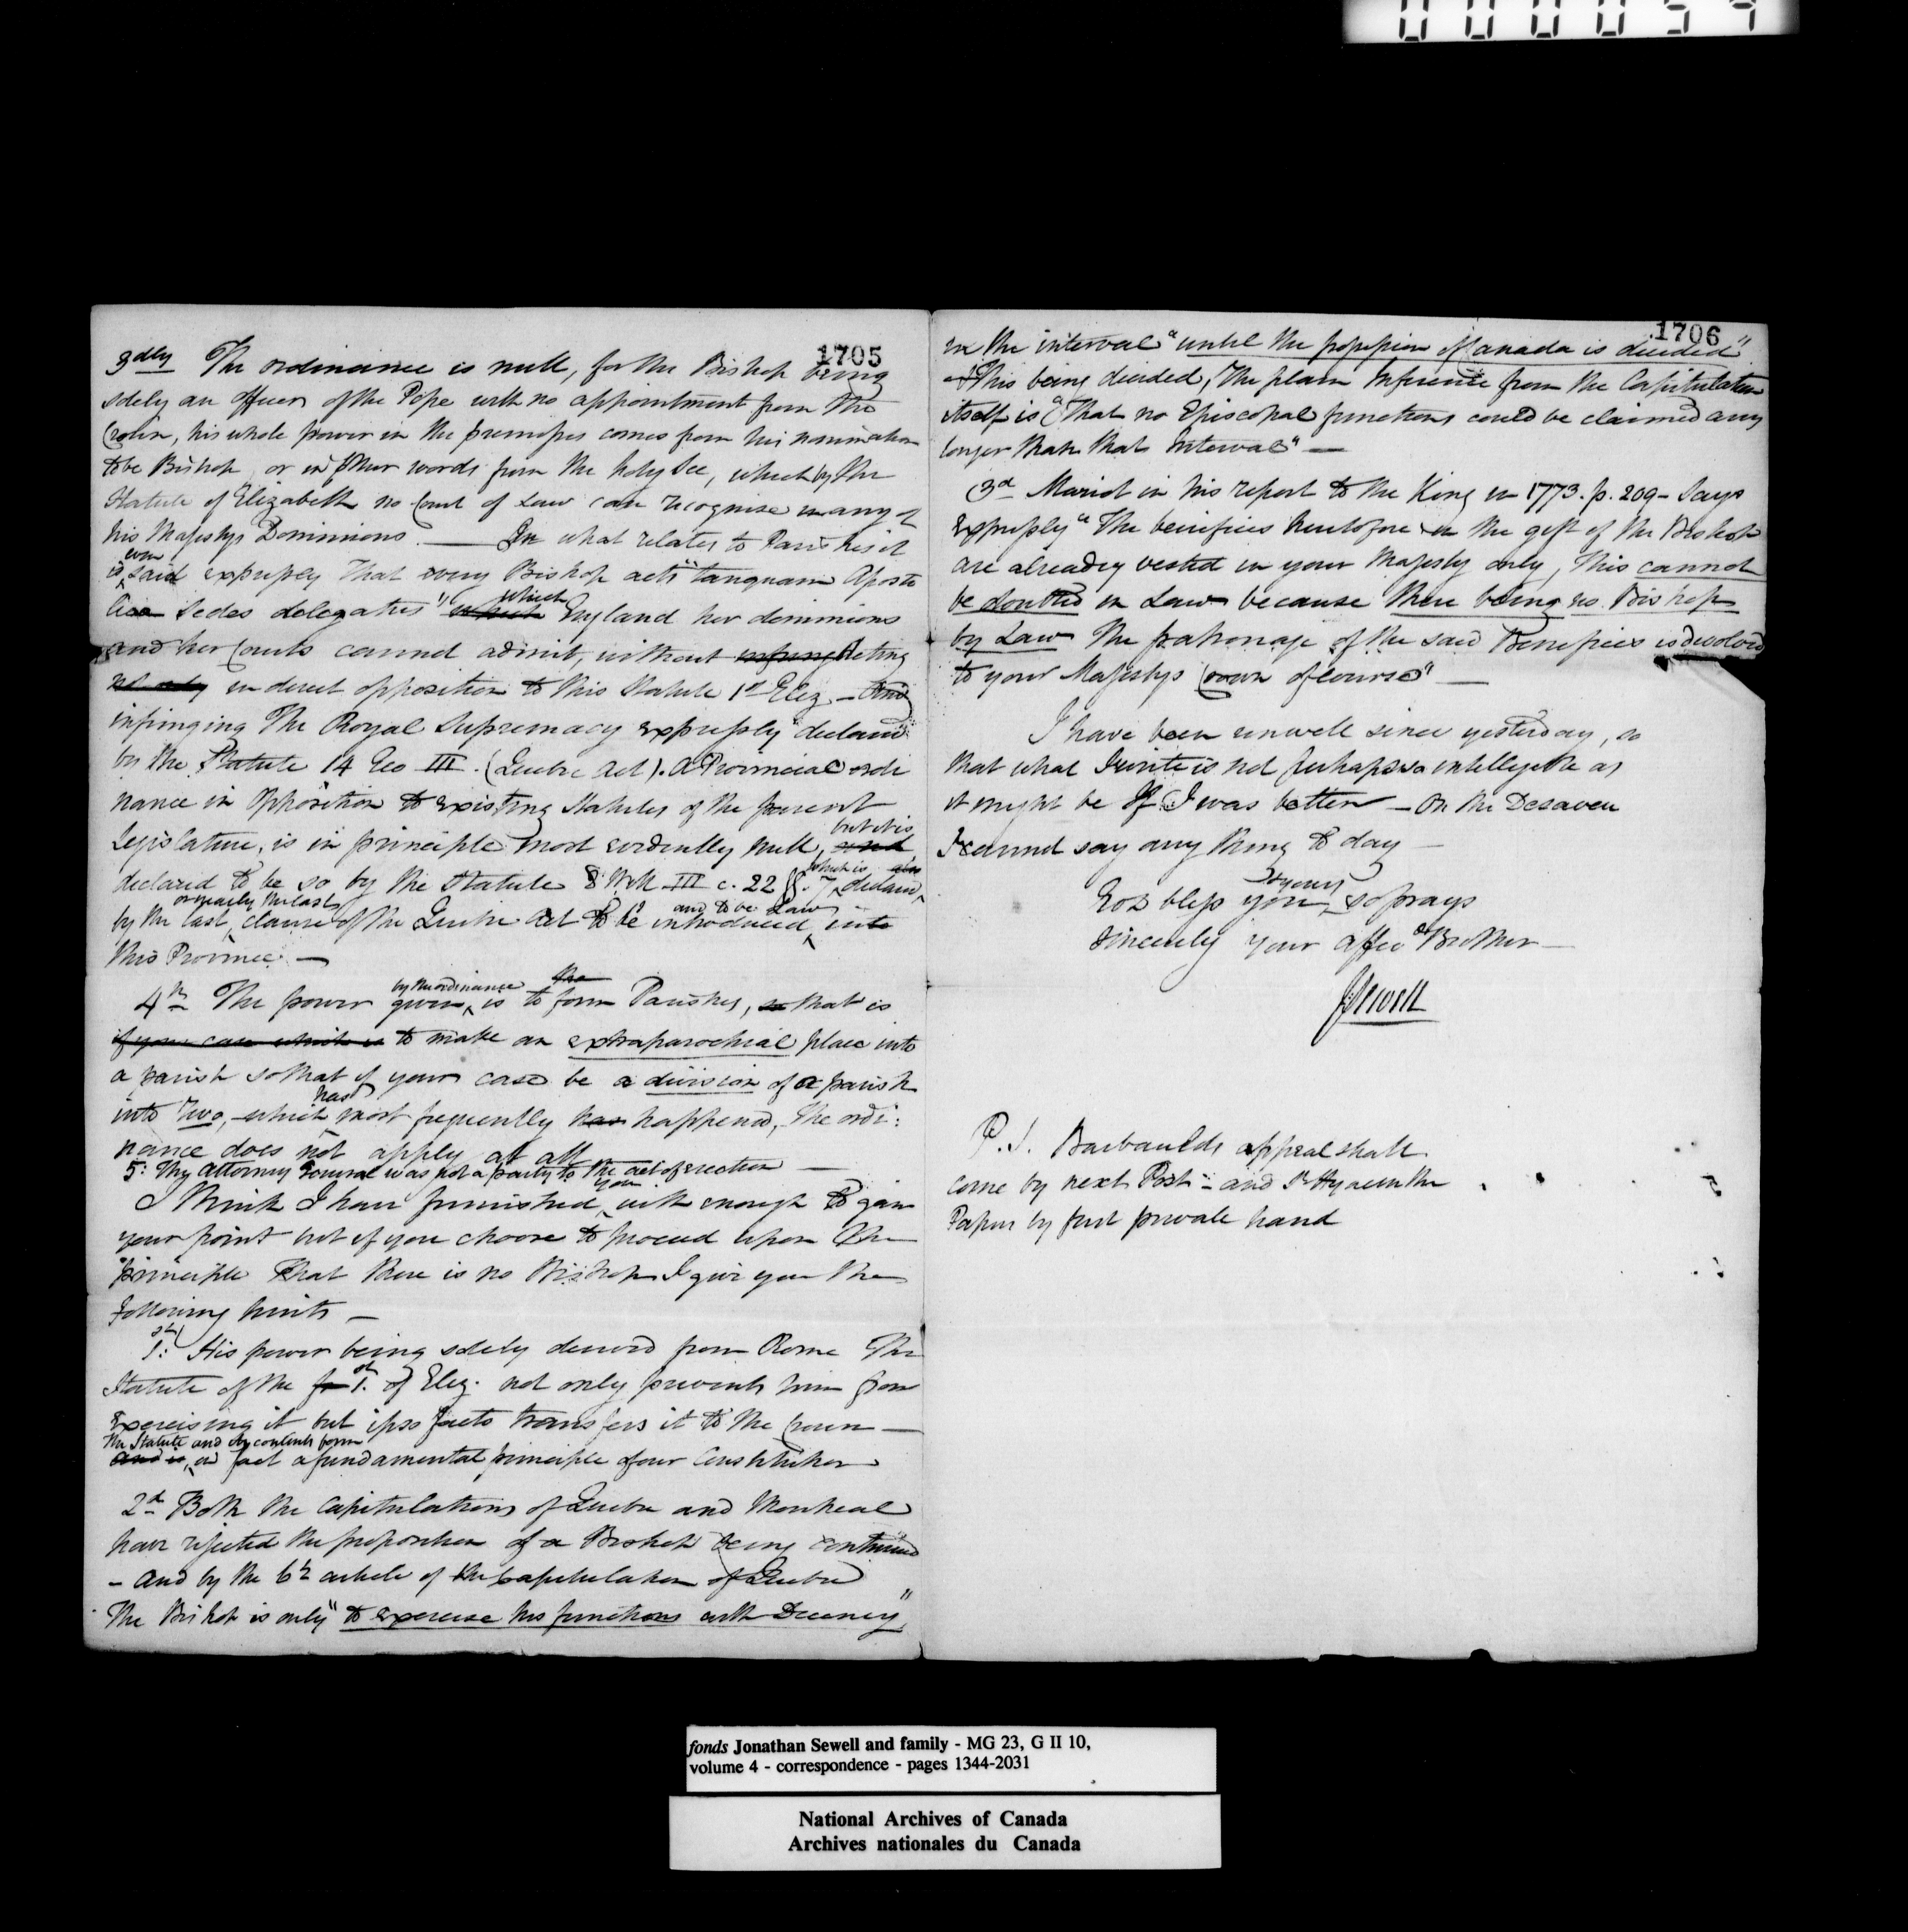 000054
1705
3dly The ordinance is null, for the Bishop being
solely an Officer of the Pope with no appointment from the
Crown, his whole power in the premises comes from his nomination
to be Bishop, or in other words from the holy See, which by the
Statute of Elizabeth no Court of Law can recognise in any of
his Majestys Dominions. — In what relates to Parishes it
is even said expressly that every Bishop acts "tanquam Aposto
licæ Sedes delegatus" which which England her dominions
and her Courts cannot admit, without infring Acting
not only in direct opposition to this Statute 1st Eliz — And
infringing The Royal Supremacy expressly declared
by the Statute 14 Geo III. (Quebec Act). A Provincial ordi
nance in Opposition to existing Statutes of the parent
Legislature, is in principle most evidently null, and but it is
declared to be so by the Statute 8 Will III c. 22 §. 7 which is also declared
by the last or nearly the last clause of the Quebec Act to be introduced and to be Law into
this Province. —
4th The power given by the ordinance is to form the Parishes, so that is
if your case which is to make an extraparochial place into
a parish so that if your case be a division of a parish
into two, which has most frequently has happened, The ordi:
nance does not apply at all
5: The Attorney General was not a party to the act of erection —
I think I have furnished you with enough to gain
your point but if you choose to proceed upon the
principle that there is no Bishop I give you the
following hints —
1st: His power being solely derived from Rome The
Statute of the 1st. of Eliz. not only prevents him from
exercising it but ipso facto transfers it to the Crown —
and is, The Statute and its contents form in fact a fundamental principle of our Constitution
2d Both the Capitulations of Quebec and Montreal
have rejected the proposition of a Bishop being continued
— and by the 6th article of the Capitulation of Quebec
The Bishop is only "to exercise his functions with Decency"
1706
in the interval "until the possession of Canada is decided"
This being decided, The plain Inference from the Capitulation
itself is "That no Episcopal functions could be claimed any
longer than that Interval" —
3d Mariot in his report to the King in 1773. p. 209 — Says
Expressly "The benefices heretofore in the gift of the Bishop
are already vested in your Majesty only, this cannot
be doubted in Law because there being no Bishop
by Law the patronage of the said Benefices is devolved
to your Majestys Crown of course" —
I have been unwell since yesterday, so
that what I write is not perhaps so intelligible as
it might be If I was better — On the Desaveu
I cannot say any thing to day —
God bless you & yours so prays
Sincerely your affec Brother —
J Sewell
P.S. Barbaulds appeal shall
come by next Post — and St Hyacinthe
Papers by first private hand
fonds Jonathan Sewell and family - MG 23, G II 10,
volume 4 - correspondence - pages 1344-2031
National Archives of Canada
Archives nationales du Canada